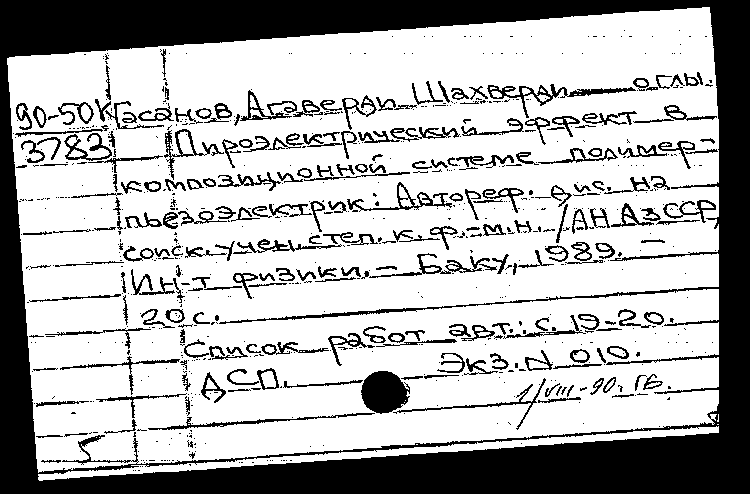 90-50к Гасанов, Агаверди Шахверди оглы.
3783 Пироэлектрический эффект в
композиционной системе полимер-
пьезоэлектрик: Автореф. дис. на
соиск. учен. степ. к. ф.-м.н. /АН АзССР,
Ин-т физики. - Баку, 1989. -
20 с.
Список работ авт.: с. 19-20.
ДСП. Экз. N 010.
1/VIII-90. ГБ.
5